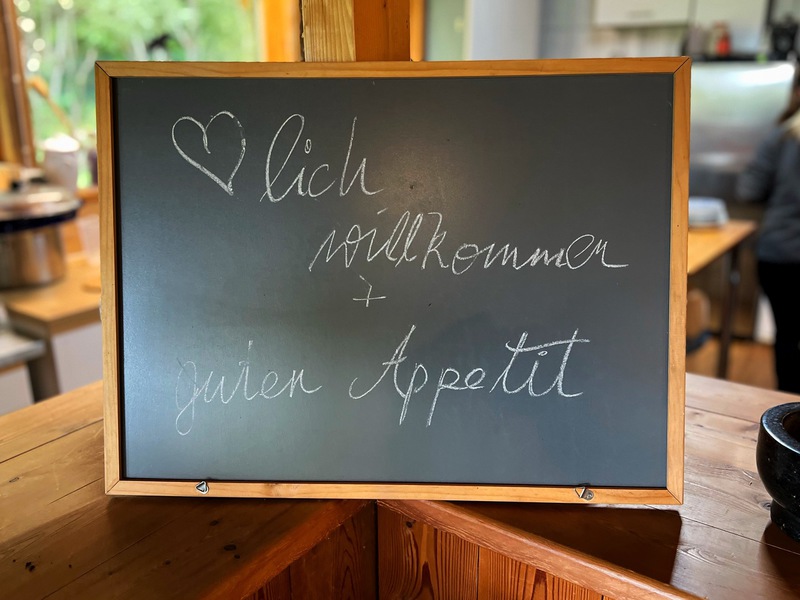 ♡lich
willkommen
+
guten Appetit